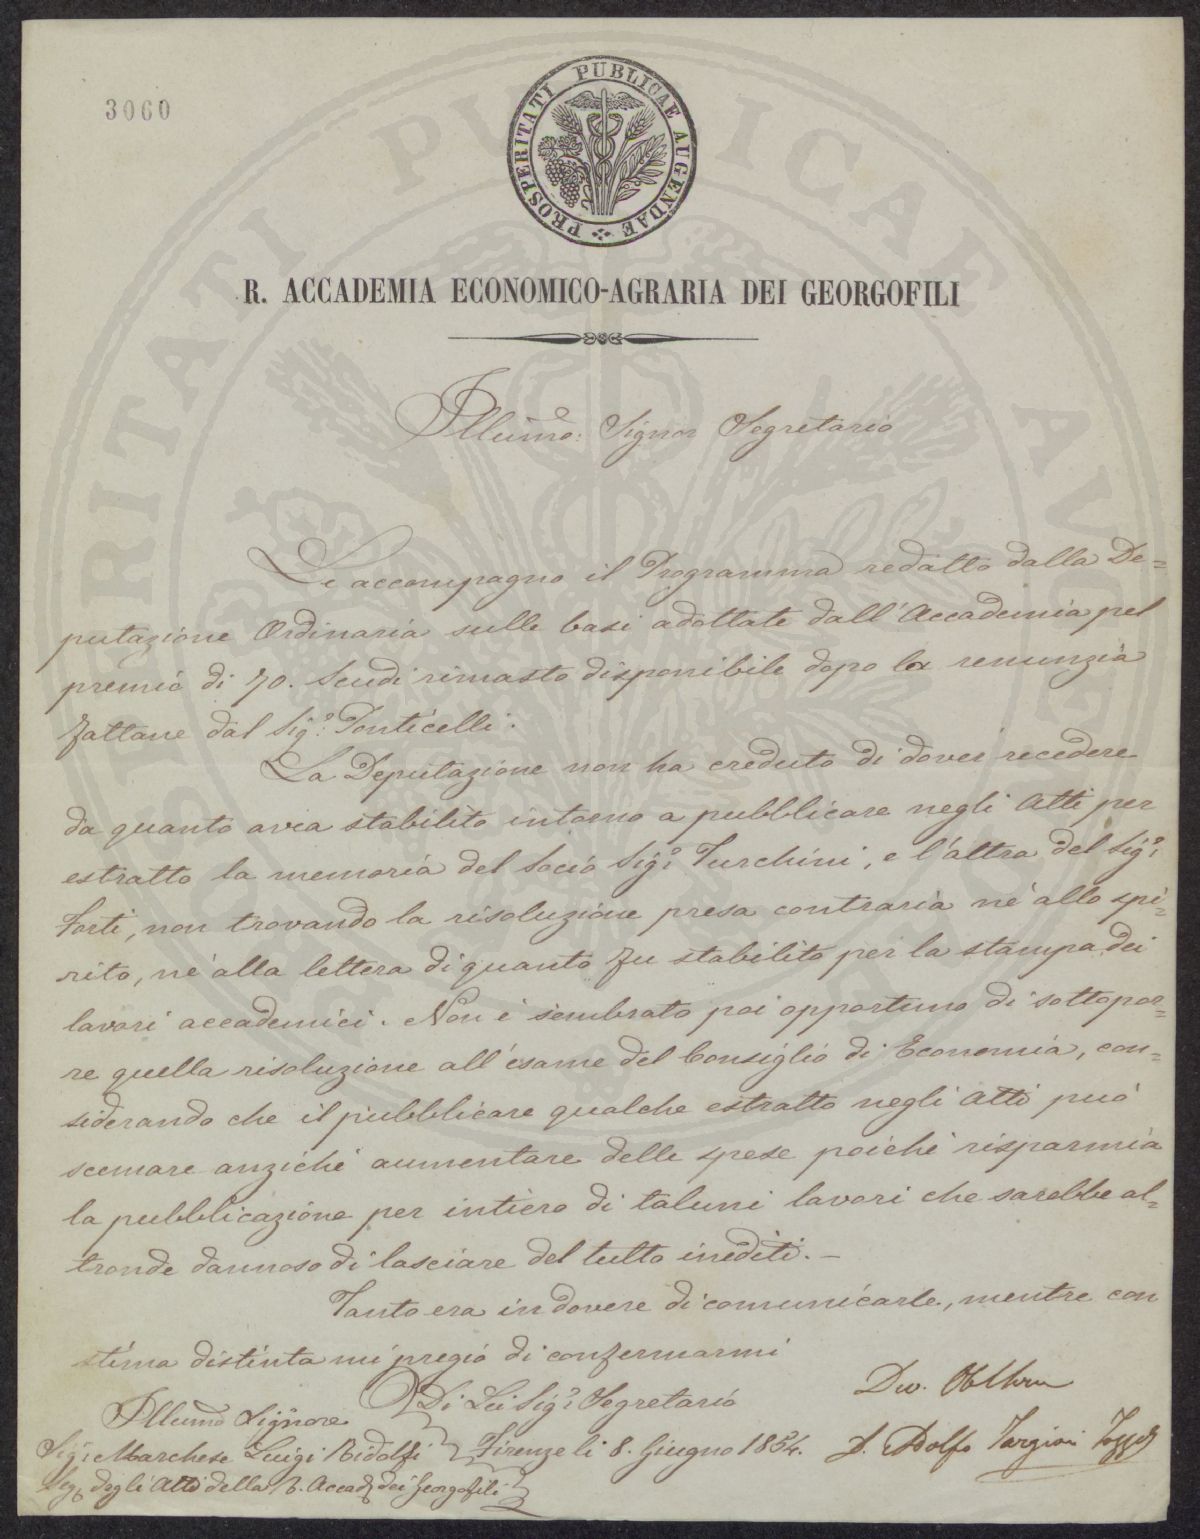 3060
PROSPERITATI PUBLICAE AUGENDAE
R. ACCADEMIA ECONOMICO-AGRARIA DEI GEORGOFILI
Illumo: Signor Segretario
Le accompagno il Programma redatto dalla De=
putazione Ordinaria sulle basi adottate dall'Accademia pel
premio di 70. Scudi rimasto disponibile dopo la renunzia
fattane dal Sigr: Ponticelli.
La Deputazione non ha creduto di dover recedere
da quanto avea stabilito intorno a pubblicare negli Atti per
estratto la memoria del Socio Sigr: Turchini, e l'altra del Sigr:
Forti, non trovando la risoluzione presa contraria nè allo spi=
rito, nè alla lettera di quanto fu stabilito per la stampa dei
lavori accademici. Non è sembrato poi opportuno di sottopor=
re quella risoluzione all'esame del Consiglio di Economia, con=
siderando che il pubblicare qualche estratto negli Atti può
scemare anzichè aumentare delle spese poichè risparmia
la pubblicazione per intiero di taluni lavori che sarebbe al=
tronde dannoso di lasciare del tutto inediti. —
Tanto era in dovere di comunicarle, mentre con
stima distinta mi pregio di confermarmi
Di Lei Sigr: Segretario
Dev. Obbl
Illumo Signore
Sigr: Marchese Luigi Ridolfi
Firenze li 8. Giugno 1854.
D. Adolfo Targioni Tozzetti
Seg. degli Atti della R. Accad. dei Georgofili